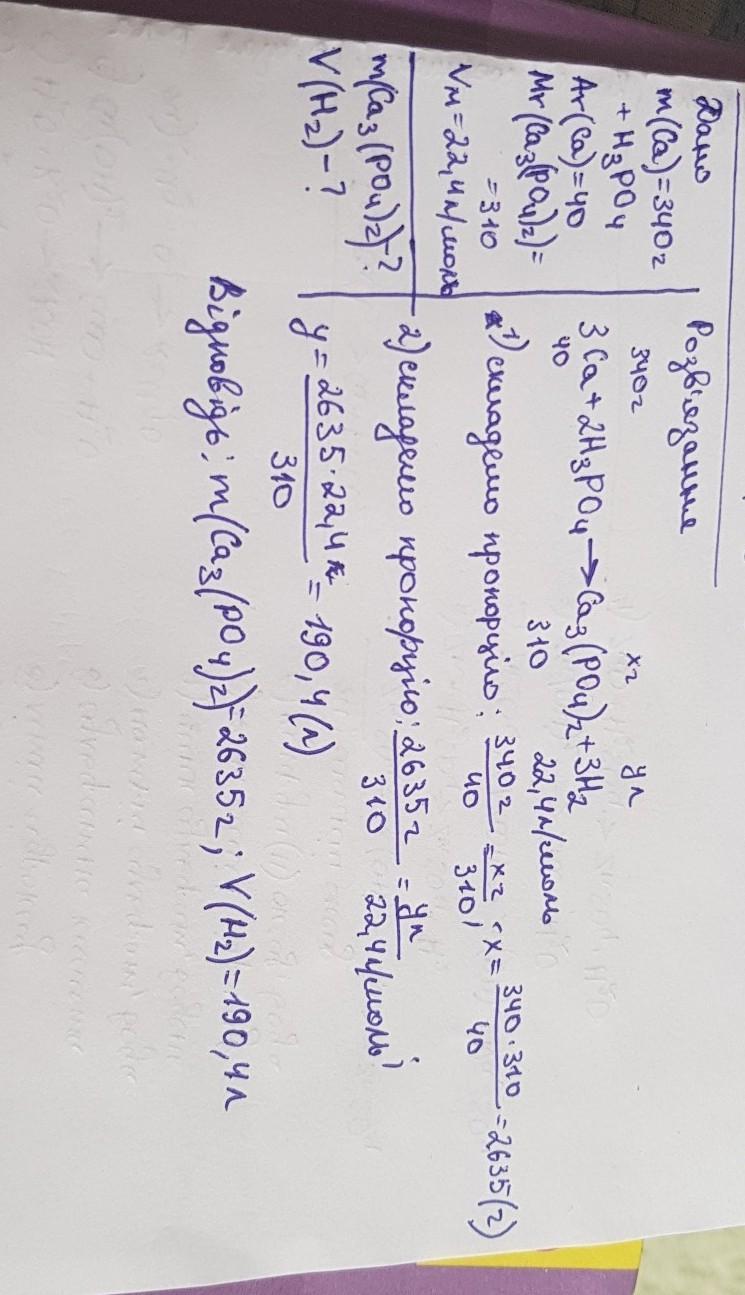 Дано
m(Ca)=340г
+ H₃PO₄
Ar(Ca)=40
Mr(Ca₃(PO₄)₂)=
=310
Vм=22,4л/моль
m(Ca₃(PO₄)₂)-?
V(H₂)-?
Розв'язання
340г xг yл
3Ca+2H₃PO₄→Ca₃(PO₄)₂+3H₂
40 310 22,4л/моль
1) складемо пропорцію: 340г/40 = xг/310; x= 340·310/40 =2635(г)
2) складемо пропорцію: 2635г/310 = yл/22,4л/моль;
y= 2635·22,4/310 = 190,4(л)
Відповідь: m(Ca₃(PO₄)₂)=2635г; V(H₂)=190,4л